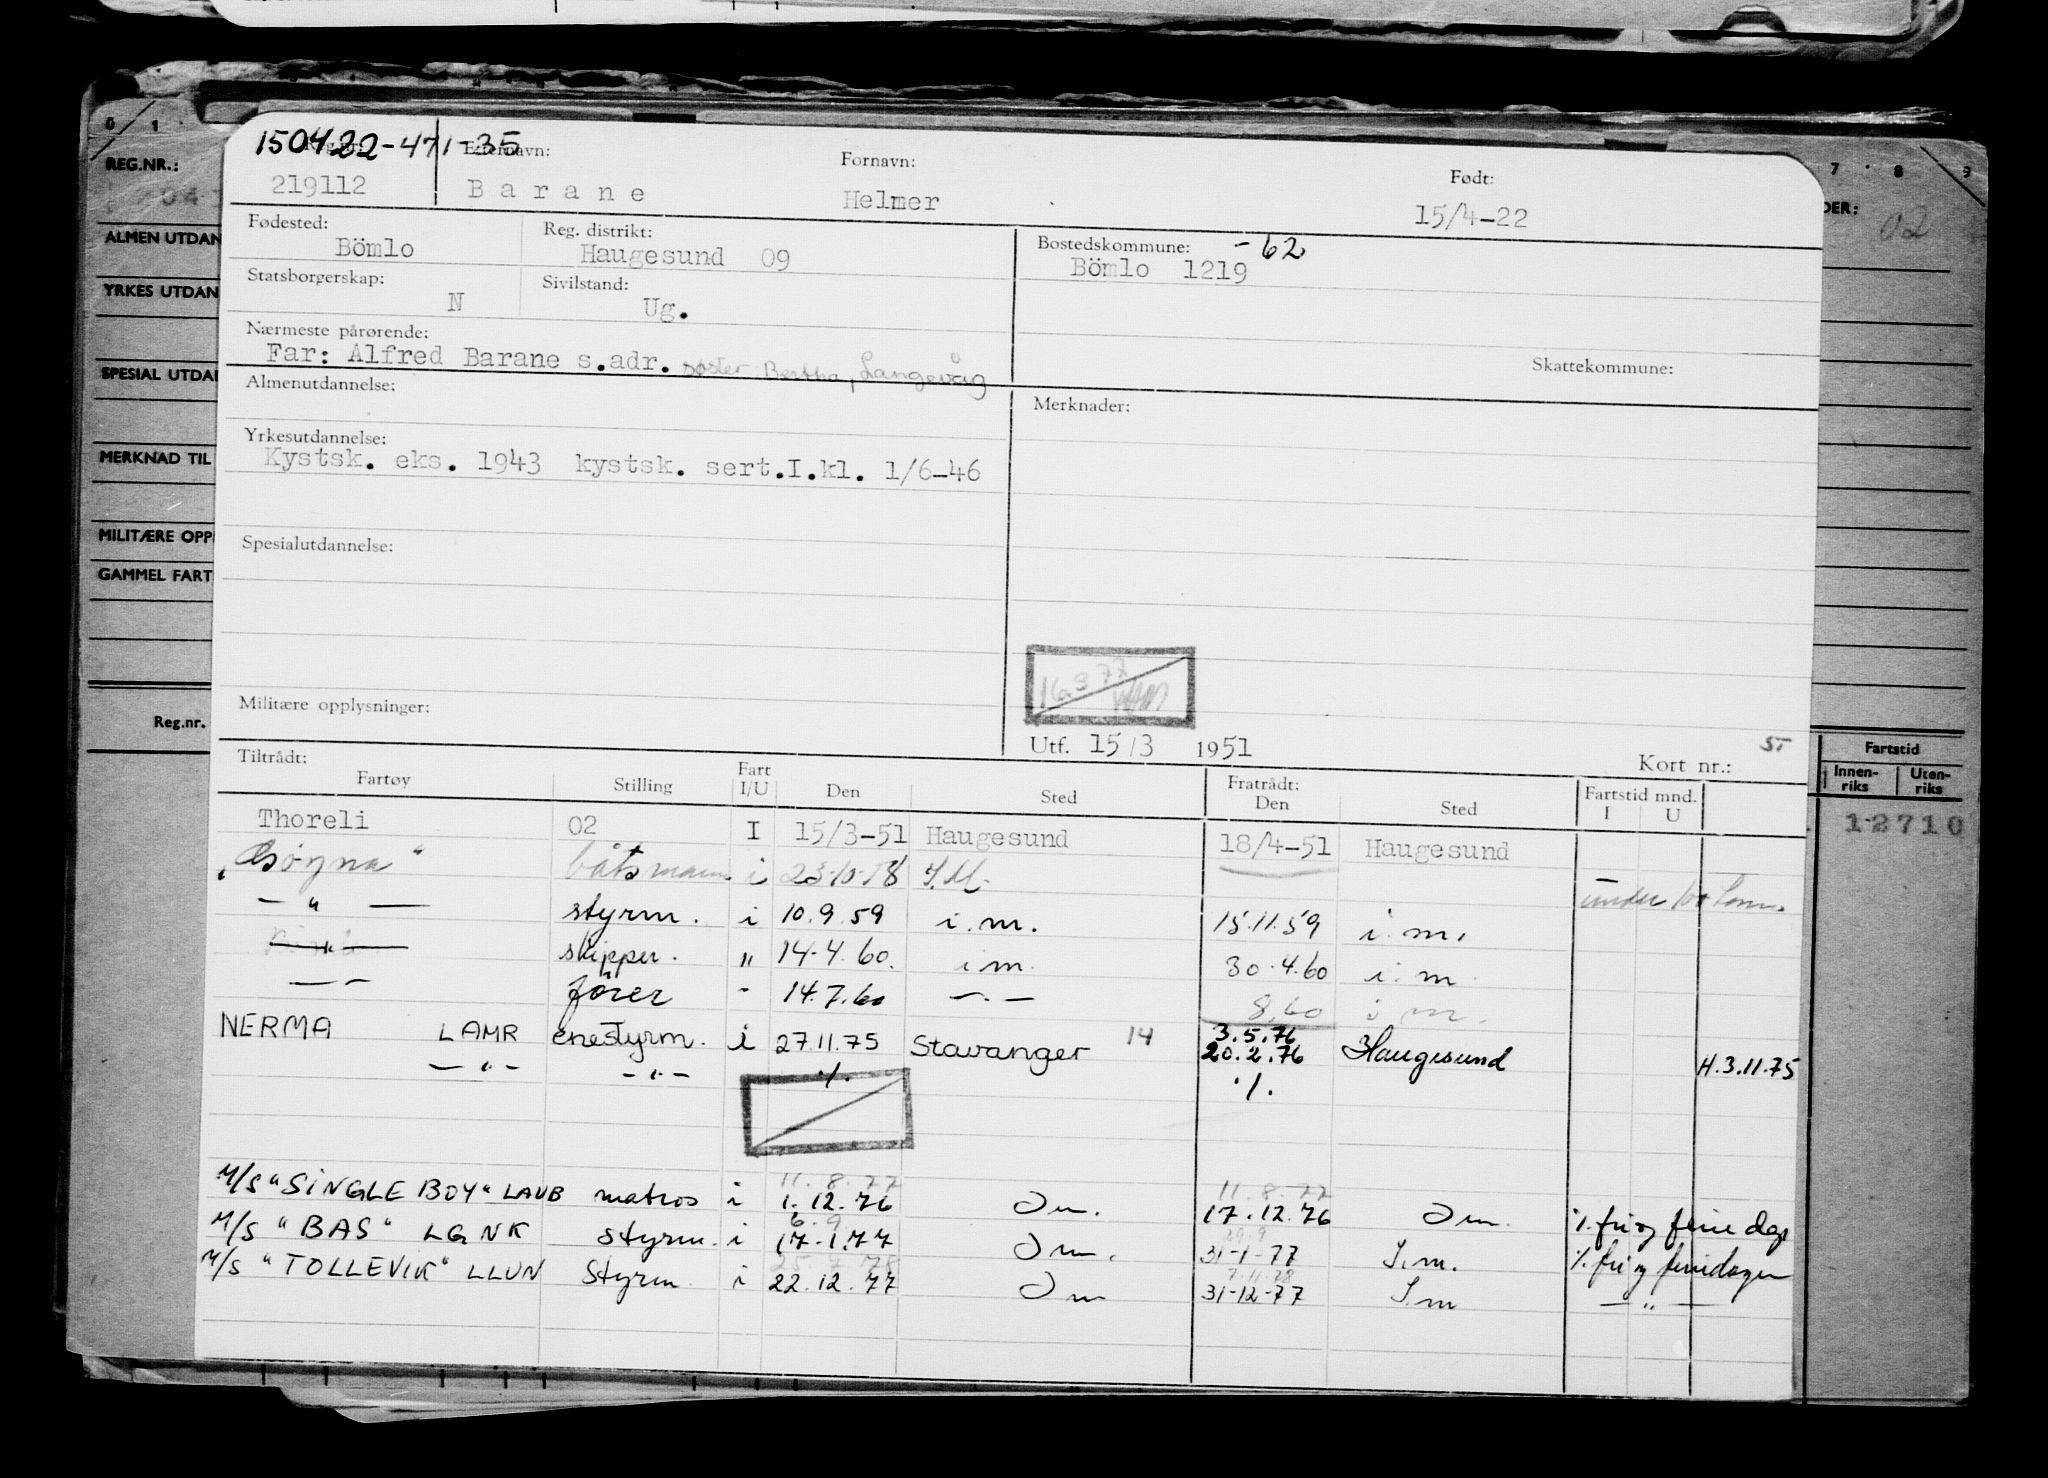 0 1 · 7 · 8 9
REG.NR.:
ALMEN UTDAN
YRKES UTDAN
SPESIAL UTDA
MERKNAD TIL
MILITÆRE OPP
GAMMEL FART
Reg.nr.
DER: 02
150422-471-35
Etternavn: Fornavn: Født:
219112 Barane Helmer 15/4-22
Fødested: Reg. distrikt: Bostedskommune: -62
Bömlo Haugesund 09 Bömlo 1219
Statsborgerskap: Sivilstand:
N Ug.
Nærmeste pårørende: Skattekommune:
Far: Alfred Barane s.adr. søster: Bertha, Langevåg
Almenutdannelse: Merknader:
Yrkesutdannelse:
Kystsk. eks. 1943 kystsk. sert.I.kl. 1/6-46
Spesialutdannelse:
16.3 77
Militære opplysninger:
Utf. 15/3 1951 Kort nr.:
Tiltrådt: Fratrådt: Fartstid mnd.
Fartøy Stilling Fart I/U Den Sted Den Sted I U
Fartstid
Innen-riks Uten-riks
12710
Thoreli 02 I 15/3-51 Haugesund 18/4-51 Haugesund
båtsmann i 23-10-58 I.M. under 100 tonn.
— " — styrm. i 10.9.59 i.m. 15.11.59 i.m.
— " — skipper. " 14-4.60. i m. 30.4.60 i.m.
— " — fører - 14.7.60 —.— 8.60 i m.
NERMA LAMR enestyrm. i 27.11.75 Stavanger 14 3.5.76
20.2.76 Haugesund H.3.11.75
— " — — " — ·/. ·/.
11.8.77 11.8.77
M/S "SINGLE BOY" LAUB matros i 1.12.76 Im. 17.12.76 Im. ·/. fri og feriedage
6.9 29.9
M/S "BAS" LGNK styrm. i 17-1.77 Im. 31-1-77 I.m. ·/. fri og feriedager
25.7.78 7.11.78
M/S "TOLLEVIK" LLUN Styrm i 22.12.77 Im 31-12-77 I.m — " —